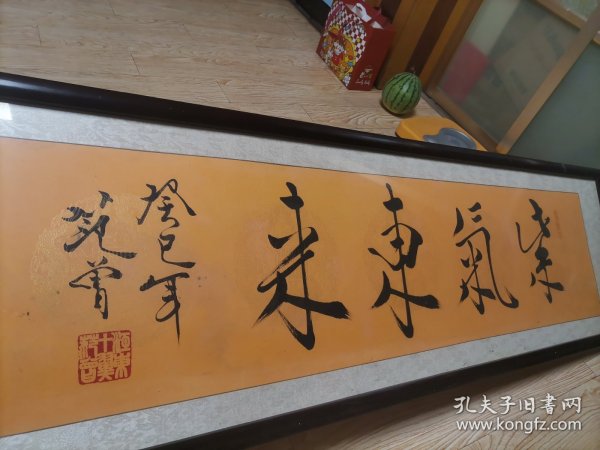 紫氣東來
癸巳年
范曾
孔夫子旧书网
www.kongfz.com